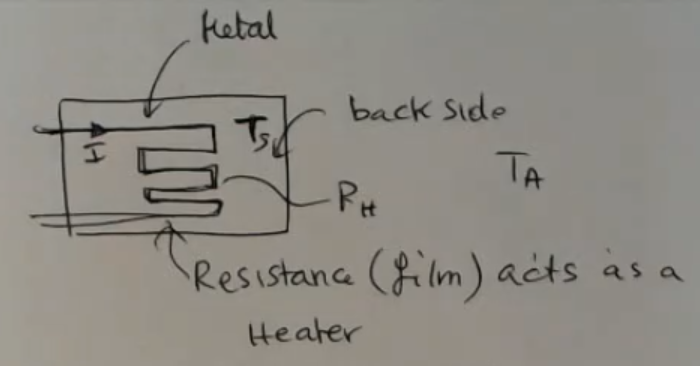 Metal
I
Ts
back side
TA
RH
Resistance (film) acts as a
Heater